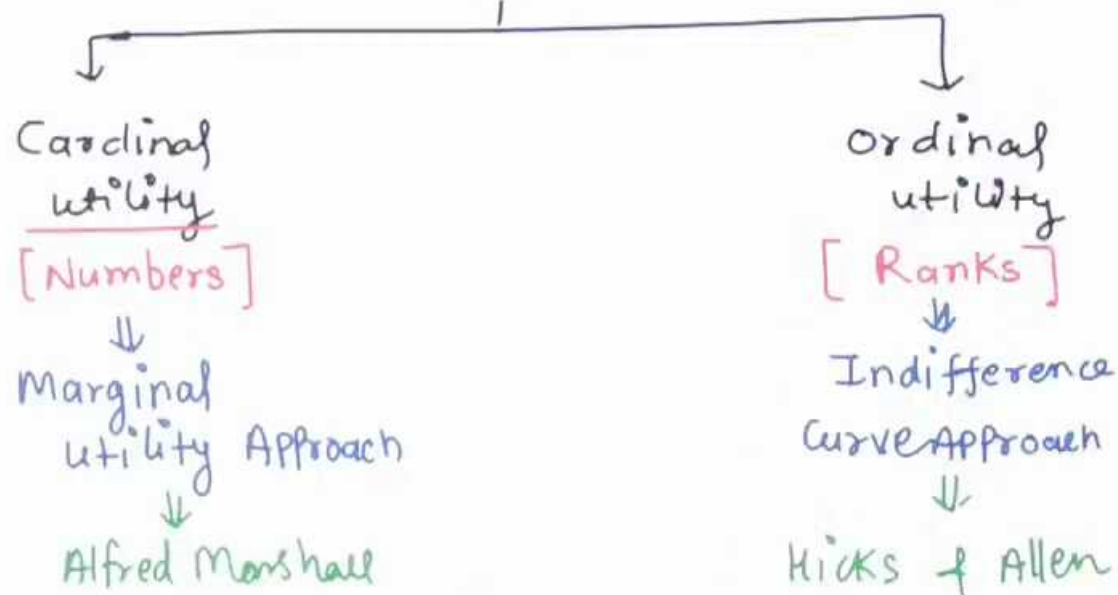 Cardinal
utility
[Numbers]
⇓
Marginal
utility Approach
⇓
Alfred Marshall
Ordinal
utility
[Ranks]
⇓
Indifference
Curve Approach
⇓
Hicks & Allen